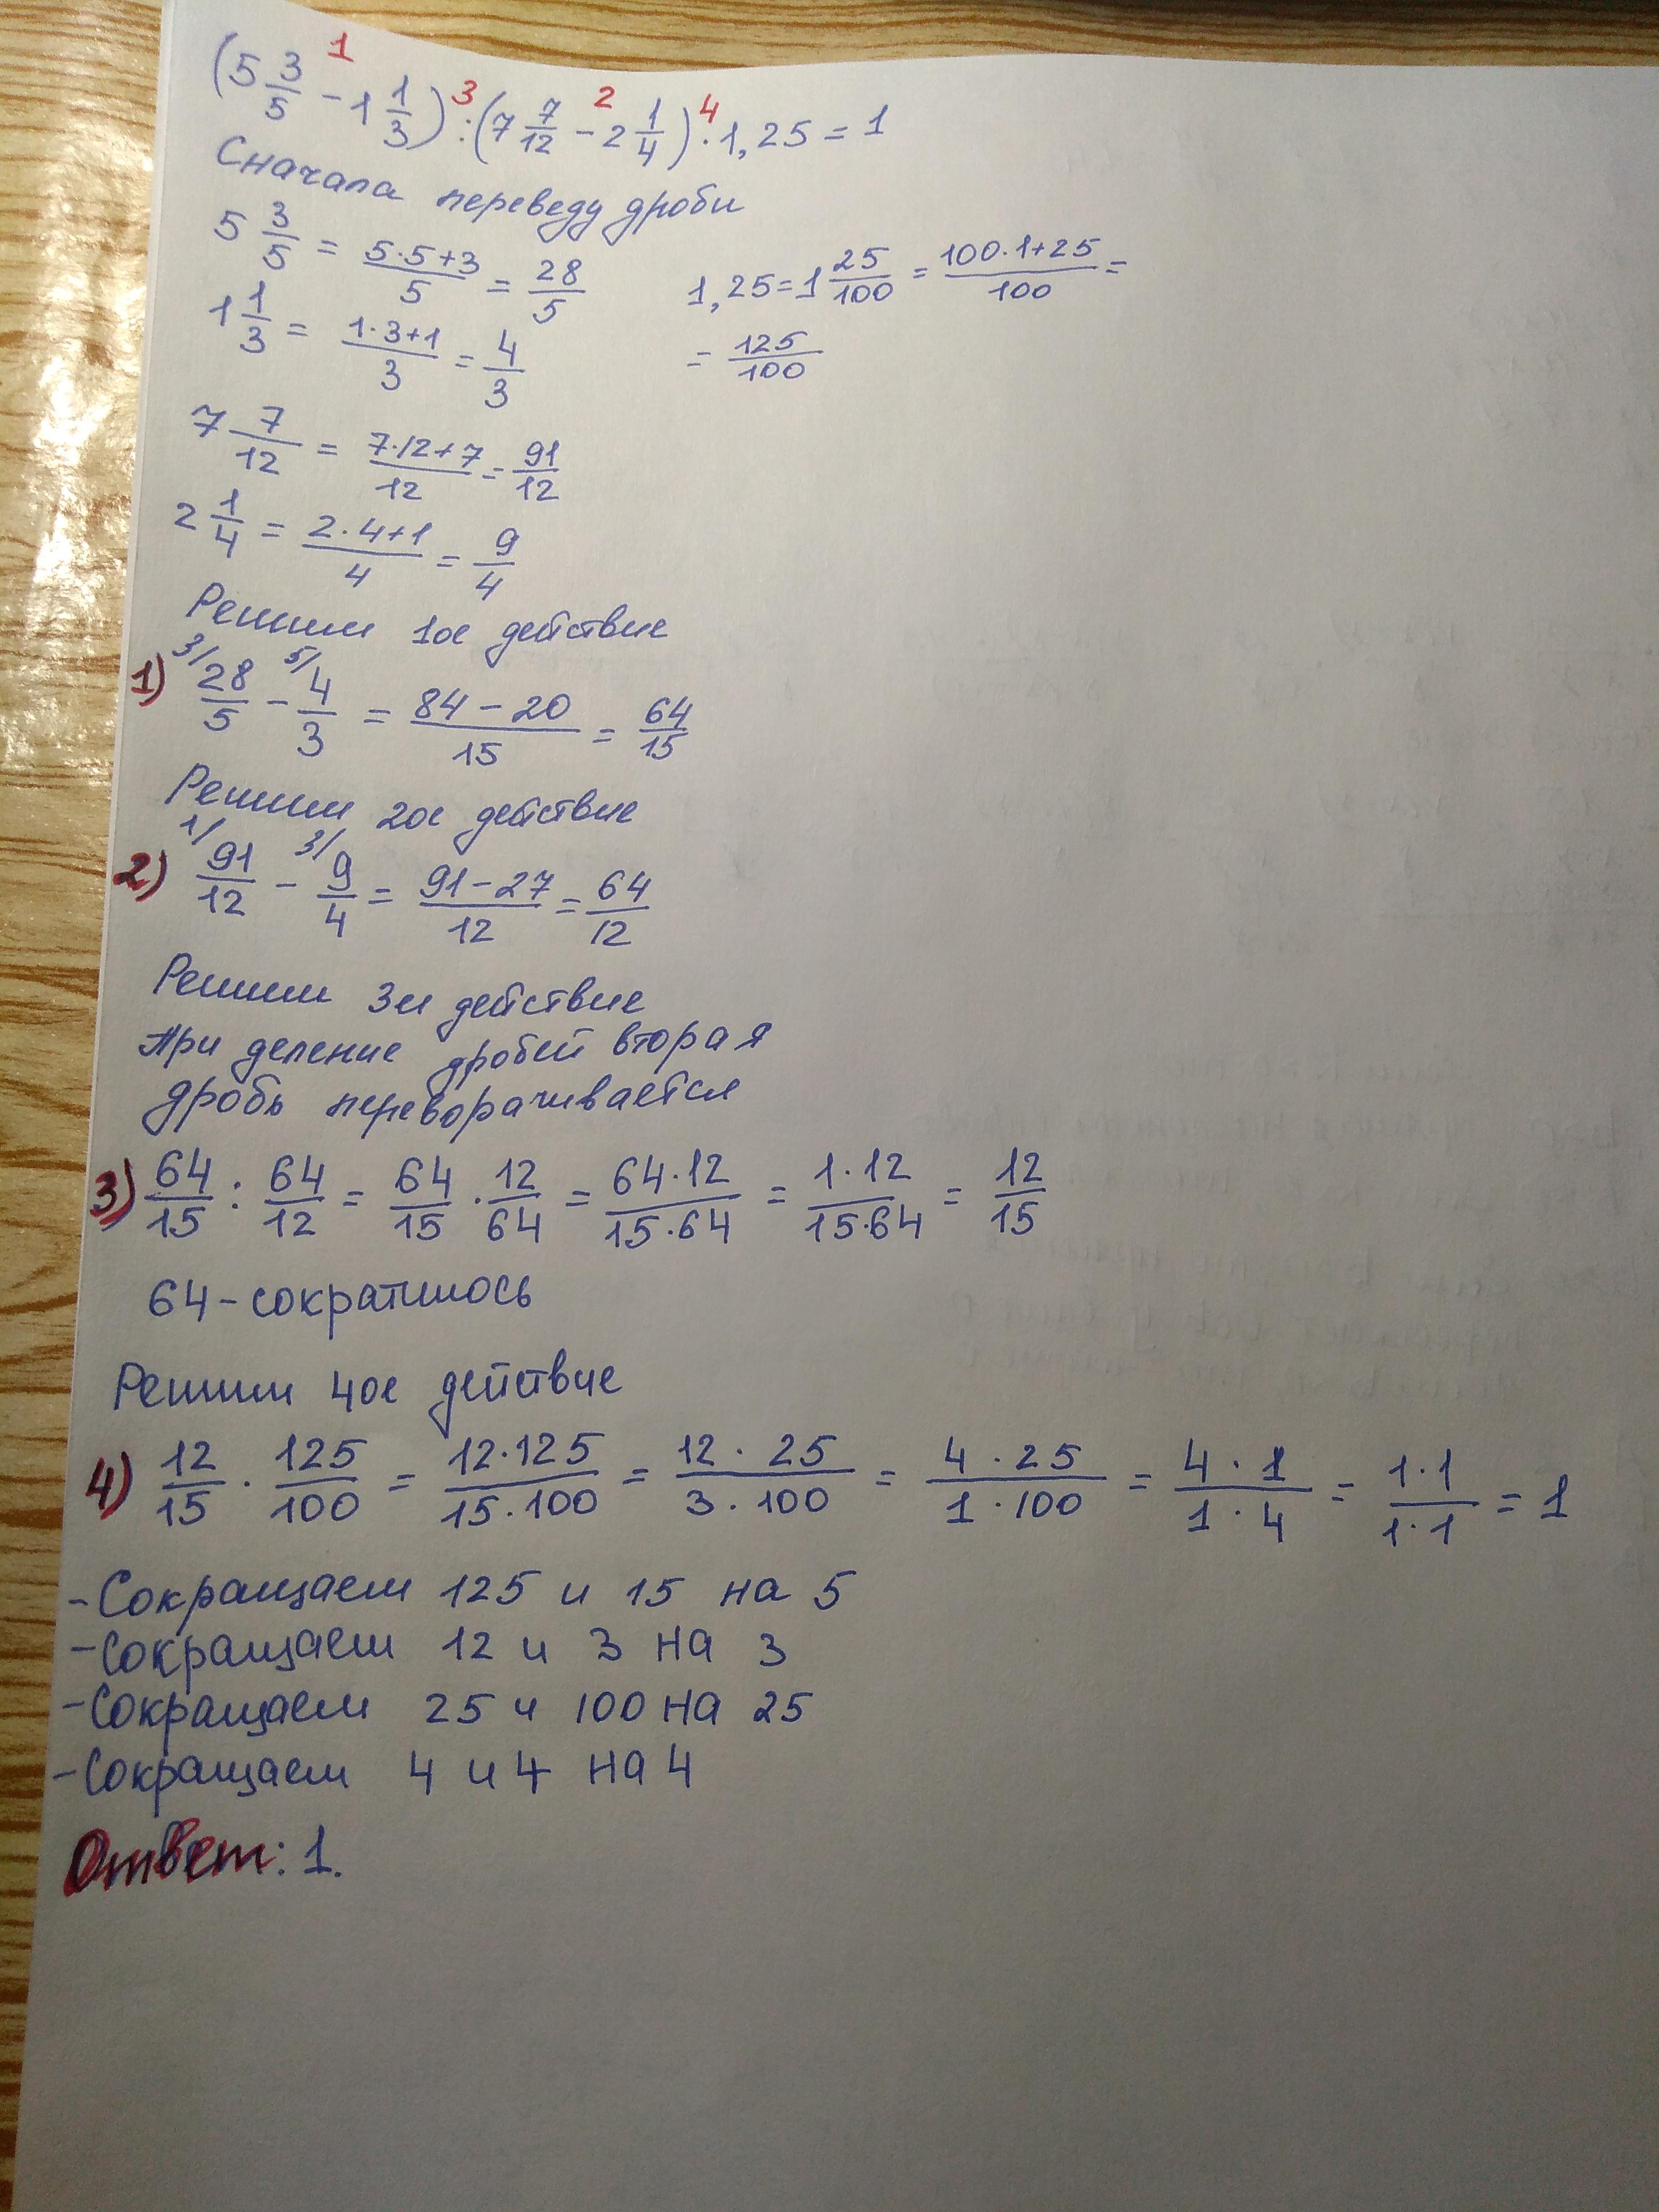 (5 3/5 - 1 1/3) : (7 7/12 - 2 1/4) · 1,25 = 1
1 3 2 4
Сначала переведу дроби
5 3/5 = (5·5+3)/5 = 28/5
1,25 = 1 25/100 = (100·1+25)/100 =
1 1/3 = (1·3+1)/3 = 4/3
= 125/100
7 7/12 = (7·12+7)/12 = 91/12
2 1/4 = (2·4+1)/4 = 9/4
Решим 1ое действие
1) 3/ 28/5 - 5/ 4/3 = (84-20)/15 = 64/15
Решим 2ое действие
2) 1/ 91/12 - 3/ 9/4 = (91-27)/12 = 64/12
Решим 3и действие
При деление дробей вторая
дробь переворачивается
3) 64/15 : 64/12 = 64/15 · 12/64 = (64·12)/(15·64) = (1·12)/(15·64) = 12/15
64-сократилось
Решим 4ое действие
4) 12/15 · 125/100 = (12·125)/(15·100) = (12·25)/(3·100) = (4·25)/(1·100) = (4·1)/(1·4) = (1·1)/(1·1) = 1
-Сокращаем 125 и 15 на 5
-Сокращаем 12 и 3 на 3
-Сокращаем 25 и 100 на 25
-Сокращаем 4 и 4 на 4
Ответ: 1.